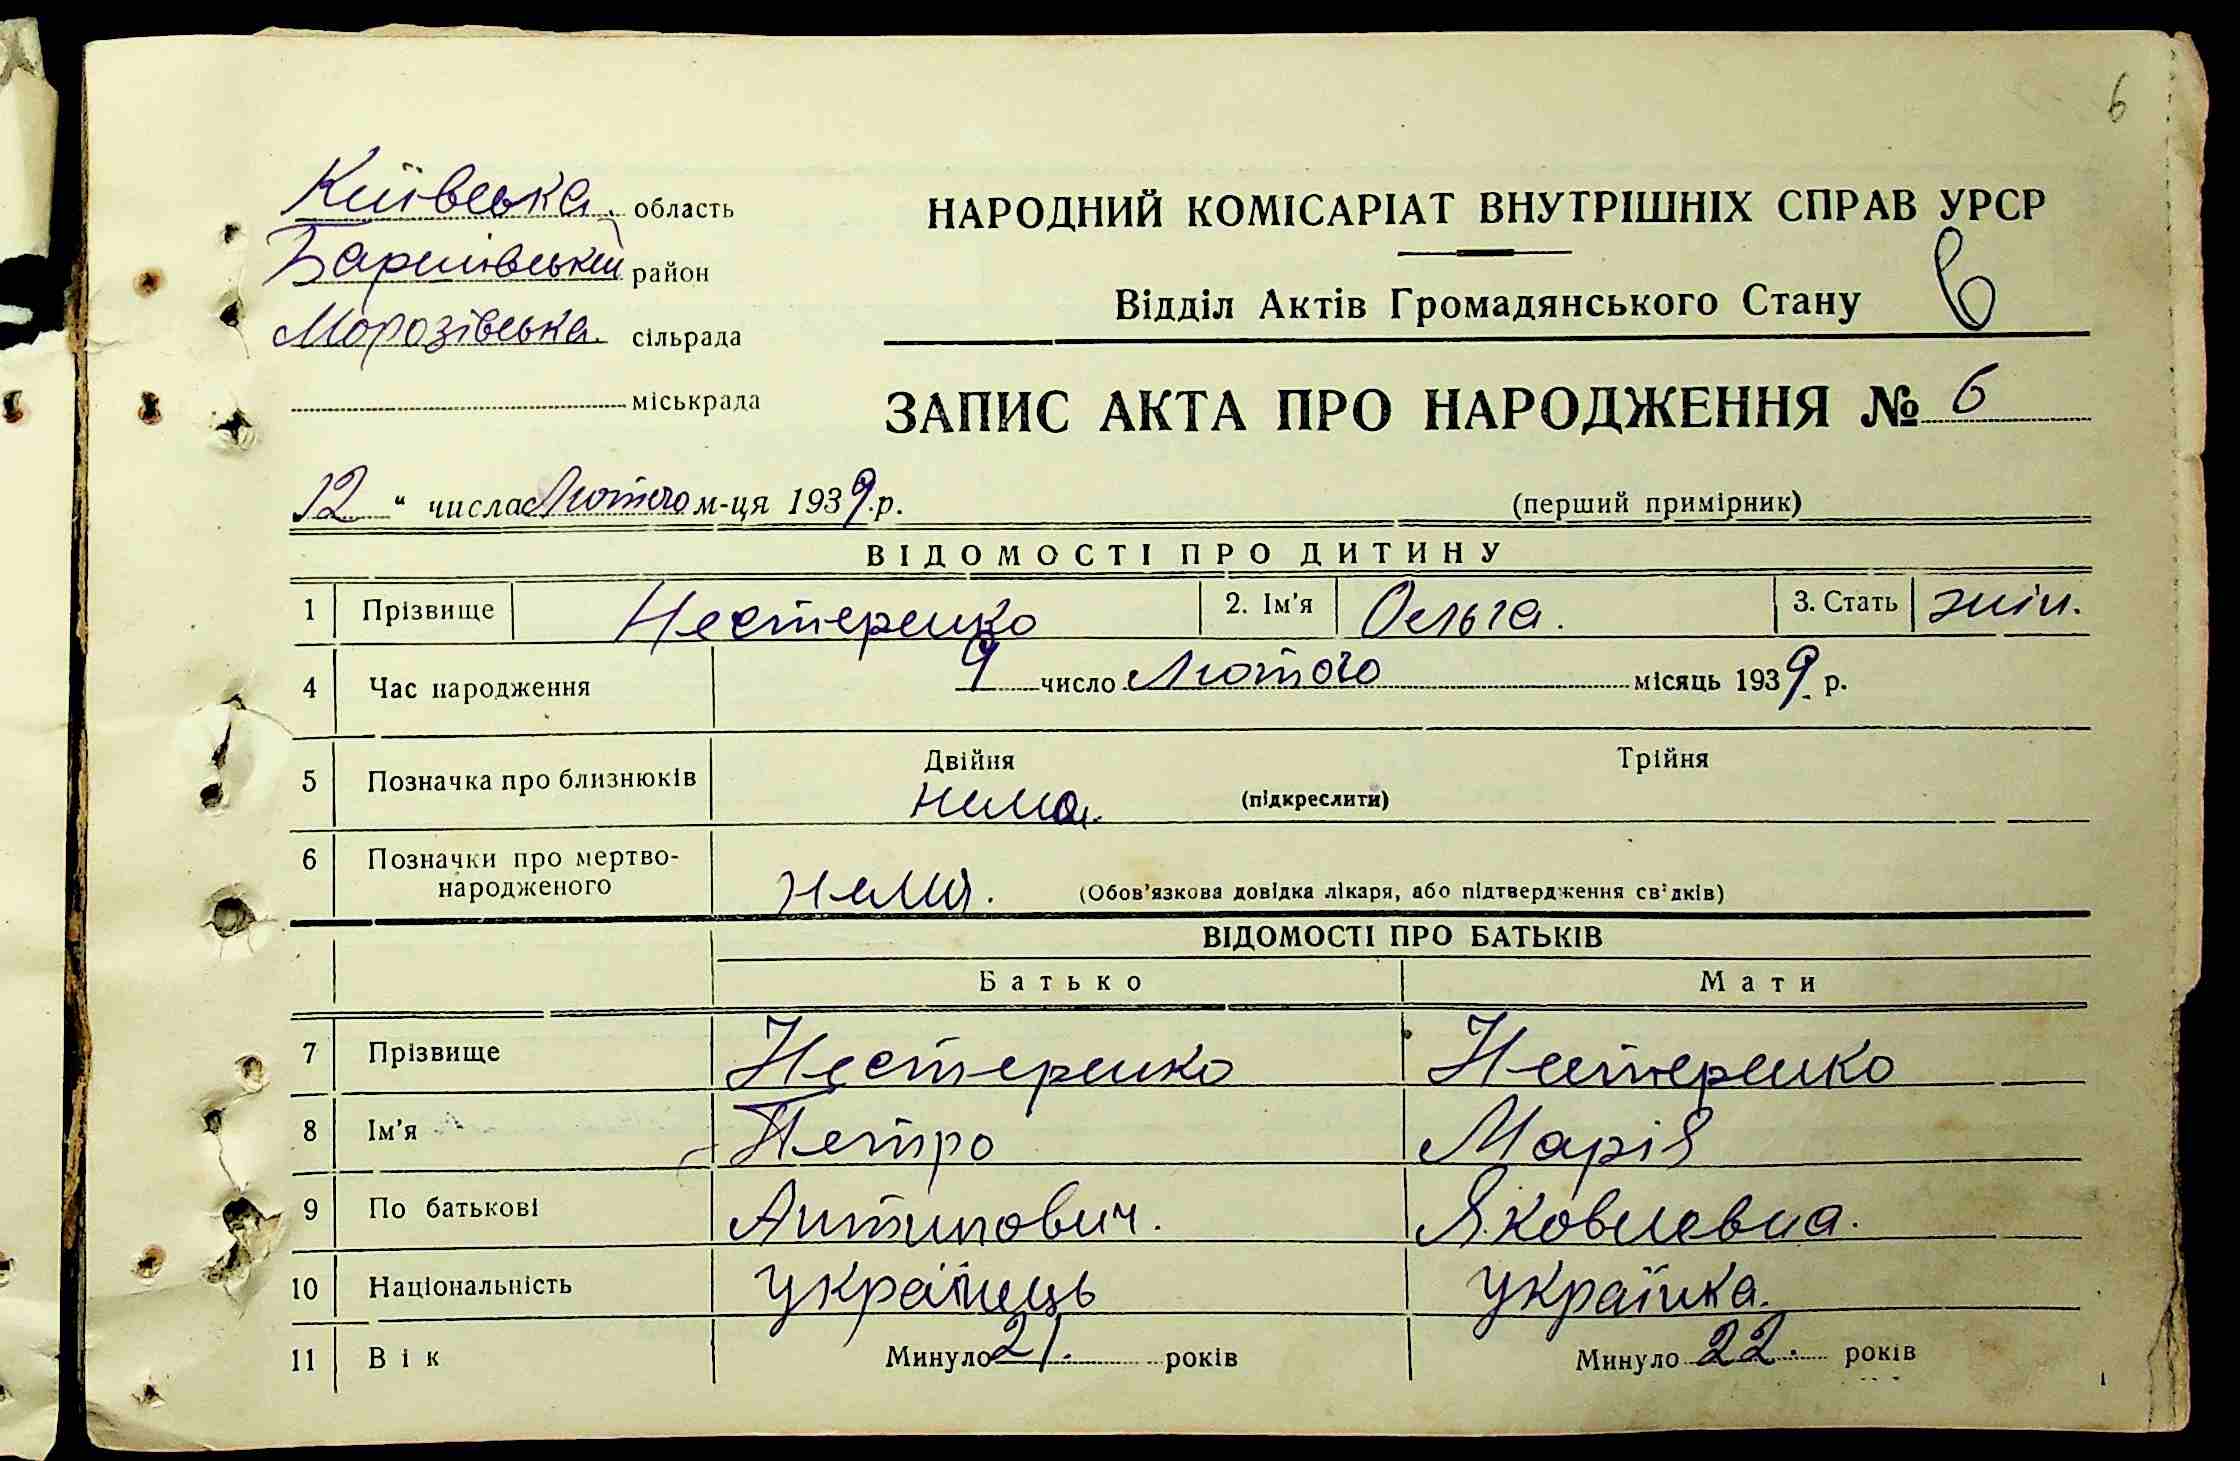 6
Київська область
Баришівський район
Морозівська сільрада
міськрада
НАРОДНИЙ КОМІСАРІАТ ВНУТРІШНІХ СПРАВ УРСР
Відділ Актів Громадянського Стану 6
ЗАПИС АКТА ПРО НАРОДЖЕННЯ № 6
12 " числа Лютого м-ця 1939.р.
(перший примірник)
ВІДОМОСТІ ПРО ДИТИНУ
1 Прізвище Нестеренко 2. Ім'я Ольга. 3. Стать жін.
4 Час народження 9 число Лютого місяць 1939. р.
5 Позначка про близнюків Двійня Трійня
нема. (підкреслити)
6 Позначки про мертво-
народженого нема. (Обов'язкова довідка лікаря, або підтвердження свідків)
ВІДОМОСТІ ПРО БАТЬКІВ
Батько Мати
7 Прізвище Нестеренко Нестеренко
8 Ім'я Петро Марія
9 По батькові Антипович. Яковлевна.
10 Національність українець українка.
11 Вік Минуло 21. років Минуло 22. років